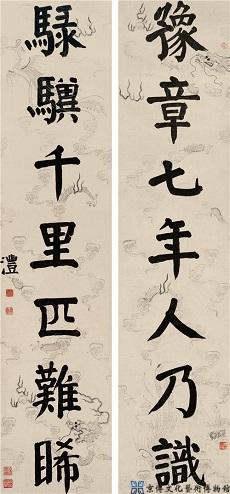 豫章七年人乃識
騄驥千里匹難睎
澧
京傳文化藝術博物館